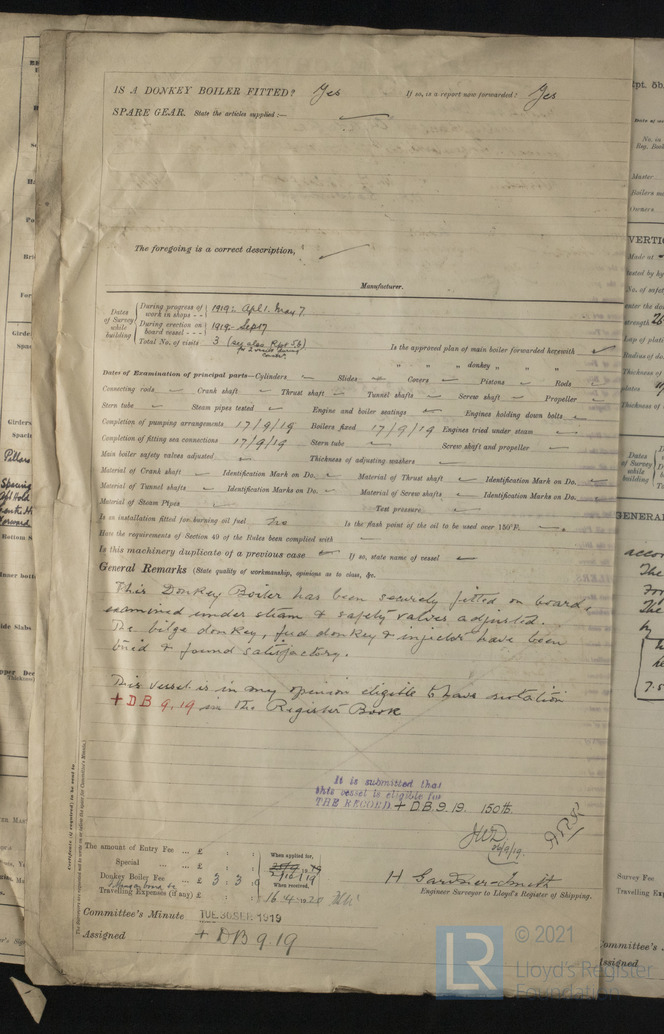 IS A DONKEY BOILER FITTED? Yes If so, is a report now forwarded? Yes
SPARE GEAR. State the articles supplied:—
The foregoing is a correct description,
Manufacturer.
Dates of Survey while building
During progress of work in shops - - 1919:- Apl 1. May 7
During erection on board vessel - - - 1919:- Sep 17
Total No. of visits 3 (see also Rpt 5b)
Is the approved plan of main boiler forwarded herewith
" " " donkey " " "
Dates of Examination of principal parts—Cylinders Slides Covers Pistons Rods
Connecting rods Crank shaft Thrust shaft Tunnel shafts Screw shaft Propeller
Stern tube Steam pipes tested Engine and boiler seatings Engines holding down bolts
Completion of pumping arrangements 17/9/19 Boilers fixed 17/9/19 Engines tried under steam
Completion of fitting sea connections 17/9/19 Stern tube Screw shaft and propeller
Main boiler safety valves adjusted Thickness of adjusting washers
Material of Crank shaft Identification Mark on Do. Material of Thrust shaft Identification Mark on Do.
Material of Tunnel shafts Identification Marks on Do. Material of Screw shafts Identification Marks on Do.
Material of Steam Pipes Test pressure
Is an installation fitted for burning oil fuel no Is the flash point of the oil to be used over 150°F.
Have the requirements of Section 49 of the Rules been complied with
Is this machinery duplicate of a previous case If so, state name of vessel
General Remarks (State quality of workmanship, opinions as to class, &c.
This Donkey Boiler has been securely fitted on board,
examined under steam & safety valves adjusted.
The bilge donkey, feed donkey & injector have been
tried & found satisfactory.
This vessel is in my opinion eligible to have notation
+ DB 9.19 in the Register Book
It is submitted that
this vessel is eligible for
THE RECORD + DB 9.19. 150 lb.
26/9/19.
The amount of Entry Fee ... £ : :
Special ... ... £ : :
Donkey Boiler Fee ... ... £ 3 : 3 : 0
Travelling Expenses (if any) £ : :
When applied for,
2/10/19
When received,
16.4.1920
H Gardner-Smith
Engineer Surveyor to Lloyd's Register of Shipping.
Committee's Minute TUE 30 SEP 1919
Assigned + DB 9.19
© 2021
Lloyd's Register
Foundation
LR